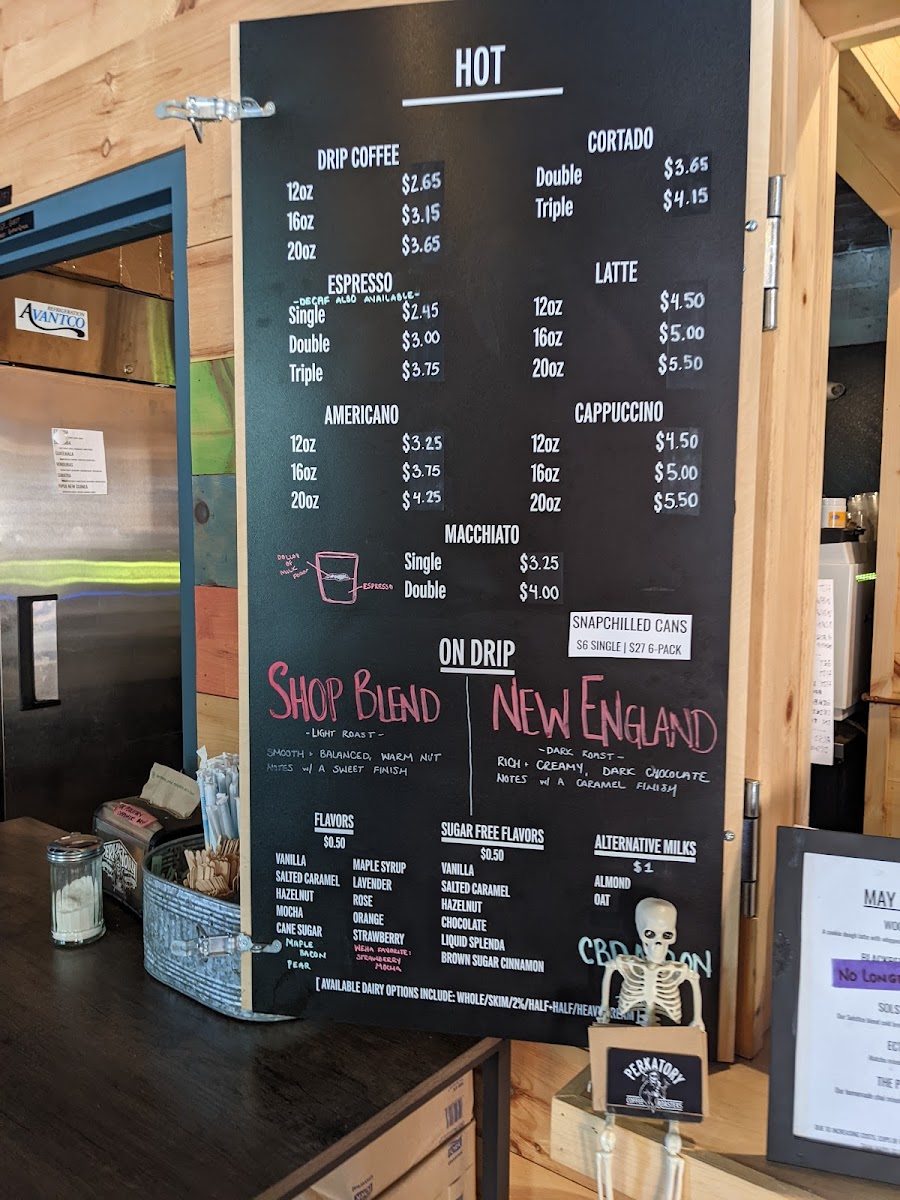 HOT
DRIP COFFEE
12oz $2.65
16oz $3.15
20oz $3.65
CORTADO
Double $3.65
Triple $4.15
ESPRESSO
-DECAF ALSO AVAILABLE-
Single $2.45
Double $3.00
Triple $3.75
LATTE
12oz $4.50
16oz $5.00
20oz $5.50
AMERICANO
12oz $3.25
16oz $3.75
20oz $4.25
CAPPUCCINO
12oz $4.50
16oz $5.00
20oz $5.50
MACCHIATO
Single $3.25
Double $4.00
DOLLAP
OF
MILK
FOAM
ESPRESSO
SNAPCHILLED CANS
$6 SINGLE | $27 6-PACK
ON DRIP
SHOP BLEND
-LIGHT ROAST-
SMOOTH + BALANCED, WARM NUT
NOTES W/ A SWEET FINISH
NEW ENGLAND
-DARK ROAST-
RICH + CREAMY, DARK CHOCOLATE
NOTES W/ A CARAMEL FINISH
FLAVORS
$0.50
VANILLA
SALTED CARAMEL
HAZELNUT
MOCHA
CANE SUGAR
MAPLE
BACON
PEAR
MAPLE SYRUP
LAVENDER
ROSE
ORANGE
STRAWBERRY
WEHA FAVORITE:
STRAWBERRY
MOCHA
SUGAR FREE FLAVORS
$0.50
VANILLA
SALTED CARAMEL
HAZELNUT
CHOCOLATE
LIQUID SPLENDA
BROWN SUGAR CINNAMON
ALTERNATIVE MILKS
$1
ALMOND
OAT
CBD
[ AVAILABLE DAIRY OPTIONS INCLUDE: WHOLE/SKIM/2%/HALF+HALF/HEAVY CREAM ]
PERKATORY
COFFEE ROASTERS
REFRIGERATION
AVANTCO
GUATEMALA
HONDURAS
SUMATRA
PAPUA NEW GUINEA
MAY
A cookie dough latte with
NO LONG
Our Solstice blend cold
THE P
Our homemade chai
DUE TO INCREASING COSTS, CUPS OF